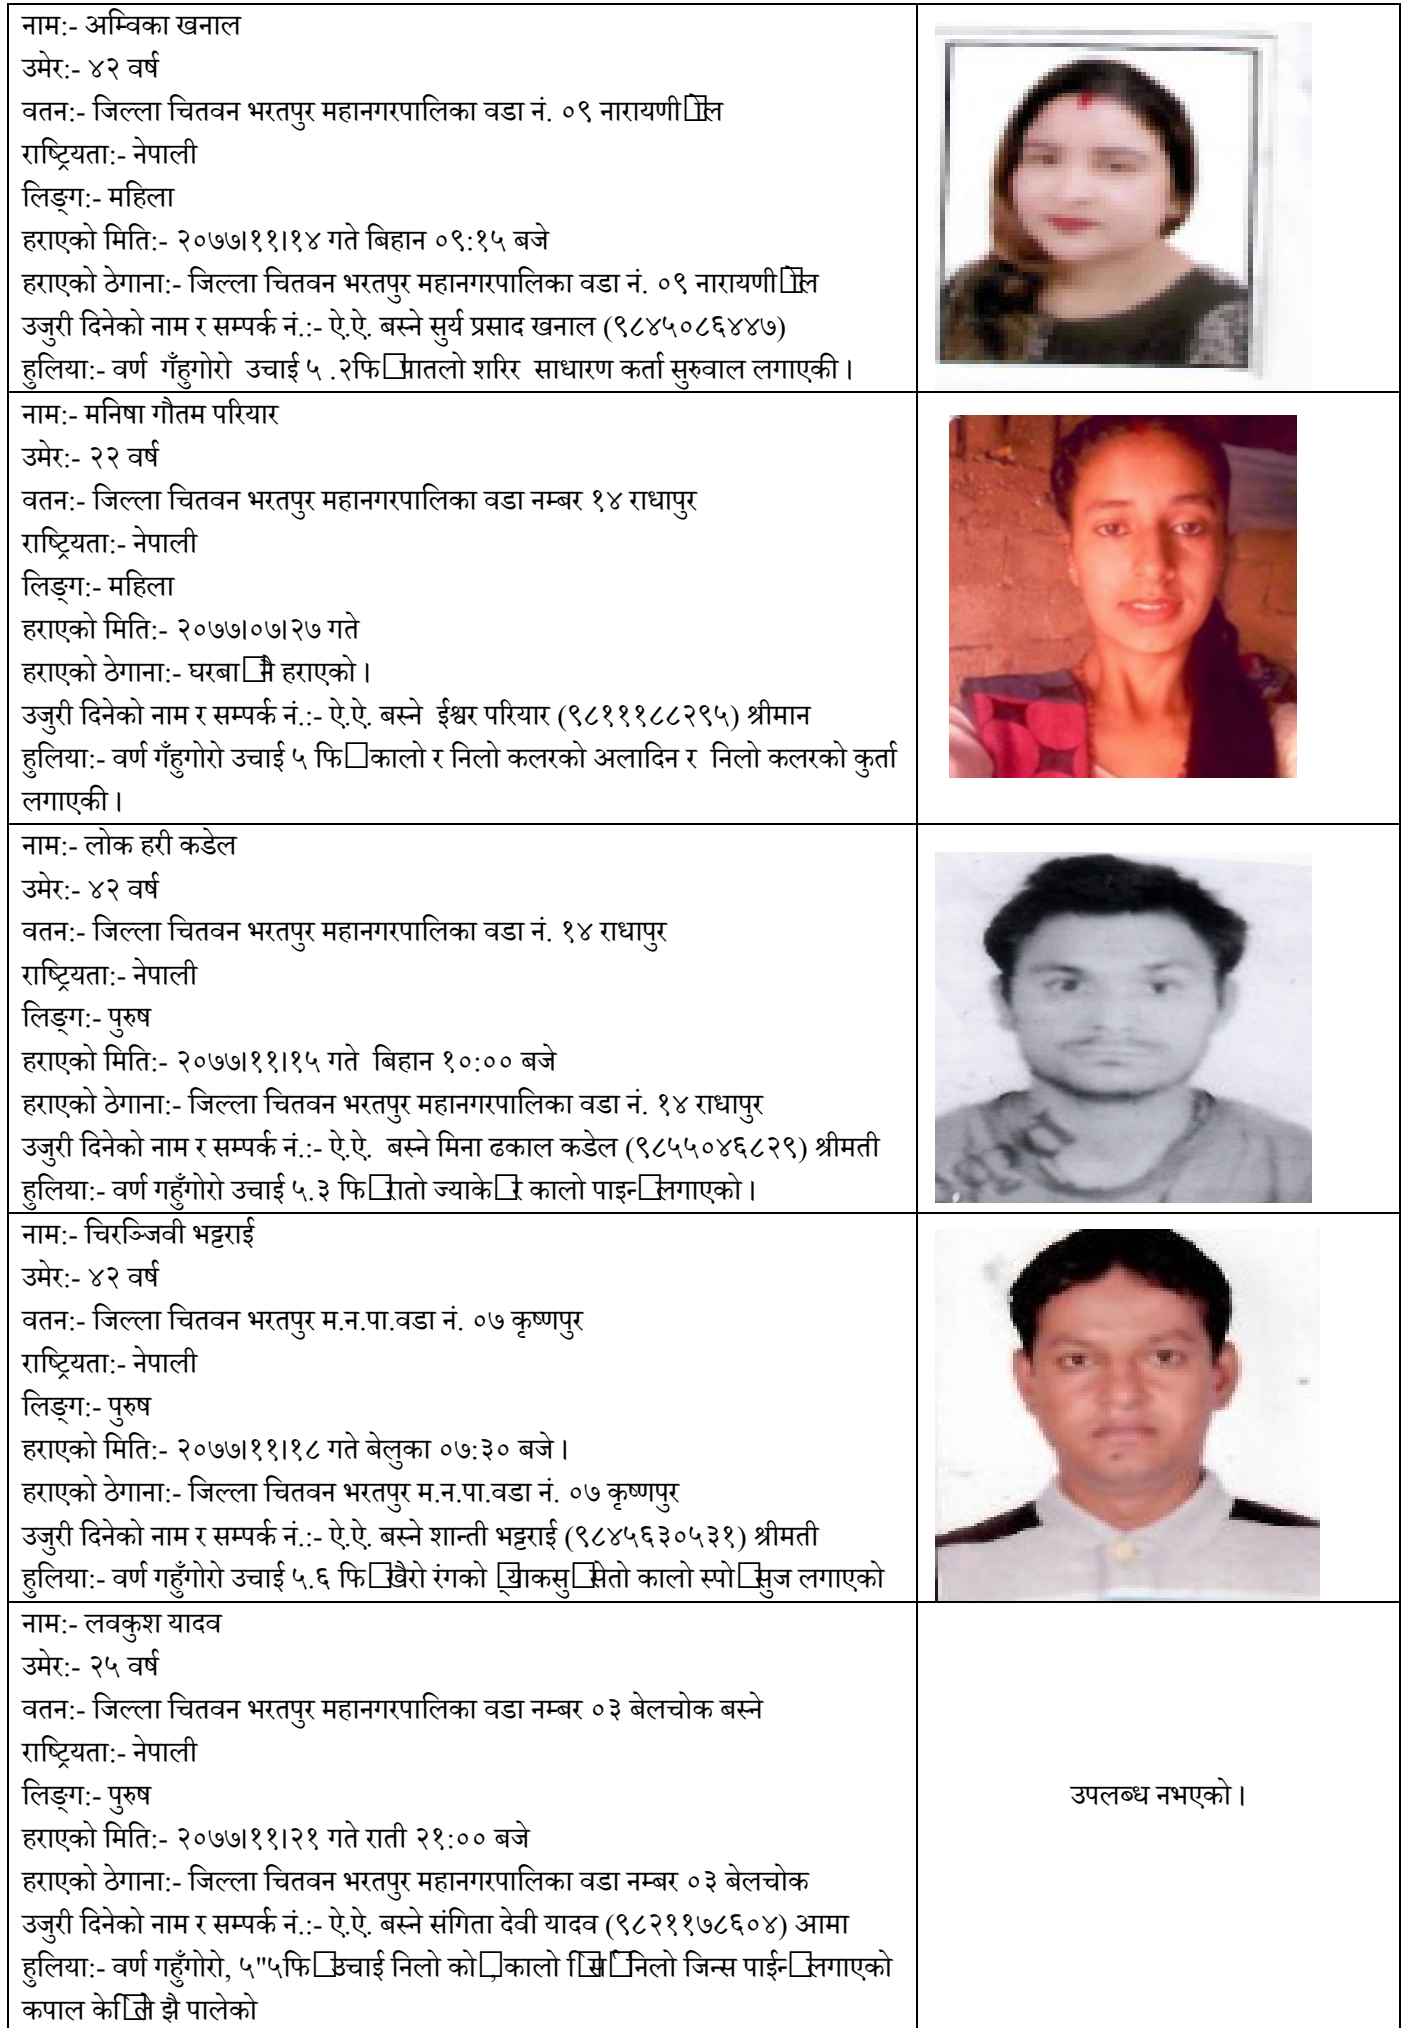 नाम:- अम्विका खनाल
उमेर:- ४२ वर्ष
वतन:- जिल्ला चितवन भरतपुर महानगरपालिका वडा नं. ०९
राष्ट्रियता:- नेपाली
लिङ्ग:- महिला
हराएको मिति:- २०७७।११।१४ गते बिहान ०९:१५ बजे
हराएको ठेगाना:- जिल्ला चितवन भरतपुर महानगरपालिका वडा नं. ०९
उजुरी दिनेको नाम र सम्पर्क नं.:- ऐ.ऐ. बस्ने सुर्य प्रसाद खनाल (९८४५०८६४४७)
हुलिया:- वर्ण गँहुगोरो उचाई ५ .२ पातलो शरिर साधारण कर्ता सुरुवाल लगाएकी ।
नाम:- मनिषा गौतम परियार
उमेर:- २२ वर्ष
वतन:- जिल्ला चितवन भरतपुर महानगरपालिका वडा नम्बर १४ राधापुर
राष्ट्रियता:- नेपाली
लिङ्ग:- महिला
हराएको मिति:- २०७७।०७।२७ गते
हराएको ठेगाना:- हराएको ।
उजुरी दिनेको नाम र सम्पर्क नं.:- ऐ.ऐ. बस्ने ईश्वर परियार (९८१११८८२९५) श्रीमान
हुलिया:- वर्ण गँहुगोरो उचाई ५ कालो र निलो कलरको अलादिन र निलो कलरको कुर्ता
लगाएकी ।
नाम:- लोक हरी कडेल
उमेर:- ४२ वर्ष
वतन:- जिल्ला चितवन भरतपुर महानगरपालिका वडा नं. १४ राधापुर
राष्ट्रियता:- नेपाली
लिङ्ग:- पुरुष
हराएको मिति:- २०७७।११।१५ गते बिहान १०:०० बजे
हराएको ठेगाना:- जिल्ला चितवन भरतपुर महानगरपालिका वडा नं. १४ राधापुर
उजुरी दिनेको नाम र सम्पर्क नं.:- ऐ.ऐ. बस्ने मिना ढकाल कडेल (९८५५०४६८२९) श्रीमती
हुलिया:- वर्ण गहुँगोरो उचाई ५.३ रातो र कालो लगाएको ।
नाम:- चिरञ्जिवी भट्टराई
उमेर:- ४२ वर्ष
वतन:- जिल्ला चितवन भरतपुर म.न.पा.वडा नं. ०७ कृष्णपुर
राष्ट्रियता:- नेपाली
लिङ्ग:- पुरुष
हराएको मिति:- २०७७।११।१८ गते बेलुका ०७:३० बजे ।
हराएको ठेगाना:- जिल्ला चितवन भरतपुर म.न.पा.वडा नं. ०७ कृष्णपुर
उजुरी दिनेको नाम र सम्पर्क नं.:- ऐ.ऐ. बस्ने शान्ती भट्टराई (९८४५६३०५३१) श्रीमती
हुलिया:- वर्ण गहुँगोरो उचाई ५.६ खैरो रंगको सेतो कालो सुज लगाएको
नाम:- लवकुश यादव
उमेर:- २५ वर्ष
वतन:- जिल्ला चितवन भरतपुर महानगरपालिका वडा नम्बर ०३ बेलचोक बस्ने
राष्ट्रियता:- नेपाली
लिङ्ग:- पुरुष
हराएको मिति:- २०७७।११।२१ गते राती २१:०० बजे
हराएको ठेगाना:- जिल्ला चितवन भरतपुर महानगरपालिका वडा नम्बर ०३ बेलचोक
उजुरी दिनेको नाम र सम्पर्क नं.:- ऐ.ऐ. बस्ने संगिता देवी यादव (९८२११७८६०४) आमा
हुलिया:- वर्ण गहुँगोरो, ५"५ उचाई निलो कालो निलो जिन्स लगाएको
कपाल झै पालेको
उपलब्ध नभएको ।